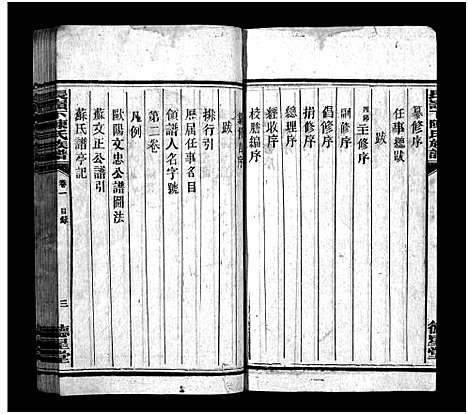 纂修序
任事總跋
跋
四卿主修序
副修序
倡修序
捐修序
總理序
經收序
校謄編序
跋
排行引
歷屆任事名目
領譜人名字號
第二卷
凡例
歐陽文忠公譜圖法
蘇文正公譜引
蘇氏譜亭記
卷一 目錄
三
德星堂
德星堂